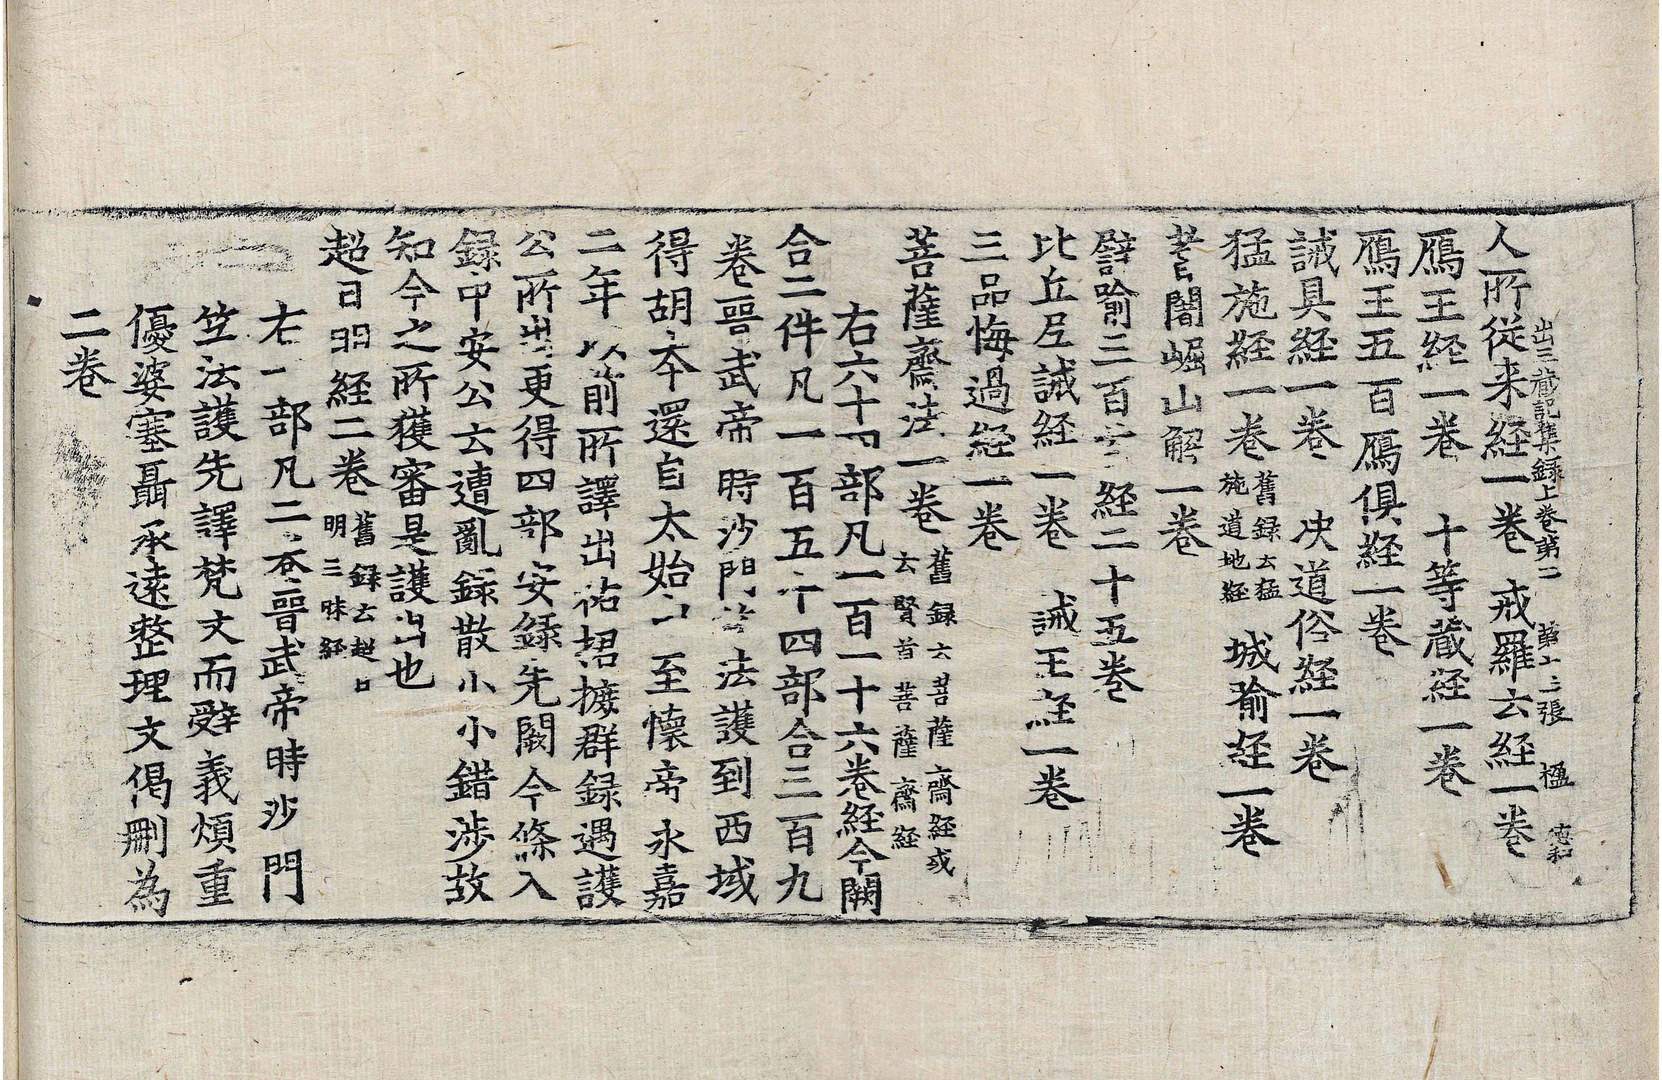 出三蔵記集録上卷第二　第十二張　楹
人所從来経一卷　戒羅云経一卷
鴈王経一卷　十等蔵経一卷
鴈王五百鴈俱経一卷
誡具経一卷　决道俗経一卷
猛施経一卷 舊録云猛施道地経　城喻経一卷
耆闍崛山解一卷
譬喻三百首経二十五卷
比丘尼誡経一卷　誡王経一卷
三品悔過経一卷
菩薩齋法一卷 舊録云菩薩齋経或云賢首菩薩齋経
右六十四部凡一百一十六卷経今闕
合二件凡一百五十四部合三百九
卷晋武帝時沙門竺法護到西域
得胡本還自太始中至懷帝永嘉
二年以前所譯出祐捃摭群録遇護
公所出更得四部安録先闕今條入
録中安公云遭亂録散小小錯涉故
知今之所獲審是護出也
超日明経二卷 舊録云超日明三昧経
右一部凡二卷晋武帝時沙門
竺法護先譯梵文而辭義煩重
優婆塞聶承遠整理文偈刪為
二卷